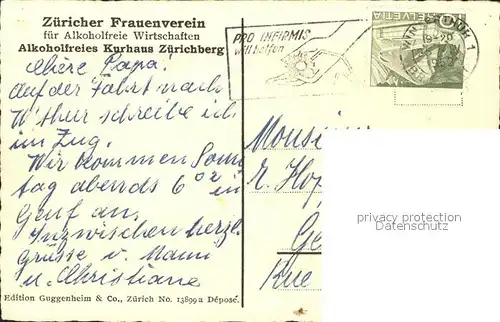 Züricher Frauenverein
für Alkoholfreie Wirtschaften
Alkoholfreies Kurhaus Zürichberg
PRO INFIRMIS
will helfen
HELVETIA
Papa!
Auf der Fahrt nach
W'thur schreibe ich
im Zug.
Wir kommen Sonn
tag abends 6 02 in
Genf an.
Inzwischen herzl.
Grüsse v. Mann
u. Christiane
Monsieur
Ge
Rue
privacy protection
Datenschutz
Edition Guggenheim & Co., Zürich No. 13899a Déposé.